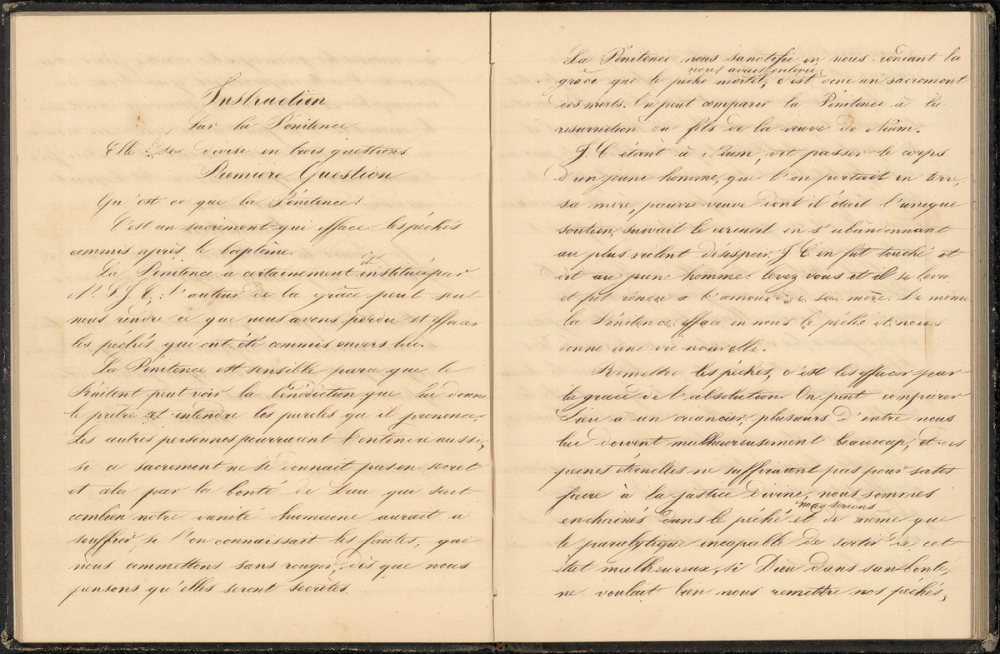 Instruction
Sur la Pénitence
Elle se divise en trois questions
Première Question
Qu'est ce que la Pénitence?
C'est un sacrement qui efface les péchés
commis après le baptême.
La Pénitence a certainement été instituée par
N. S. J. C.: l'auteur de la grâce peut seul
nous rendre ce que nous avons perdu et effacer
les péchés qui ont été commis envers lui.
La Pénitence est sensible parce que le
Pénitent peut voir la bénédiction que lui donne
le prêtre et entendre les paroles qu'il prononce.
Les autres personnes pourraient l'entendre aussi,
si ce sacrement ne se donnait pas en secret
et cela par la bonté de Dieu qui sait
combien notre vanité humaine aurait à
souffrir si l'on connaissait les fautes, que
nous commettons sans rougir, dès que nous
pensons qu'elles seront secrètes.
La Pénitence nous sanctifie en nous rendant la
grâce que le péché mortel nous avait enlevée, c'est donc un sacrement
des morts. On peut comparer la Pénitence à la
résurrection du fils de la veuve de Naïm.
J. C étant à Naïm, vit passer le corps
d'un jeune homme, que l'on portait en terre,
sa mère, pauvre veuve dont il était l'unique
soutien, suivait le cercueil en s'abandonnant
au plus violent désespoir. J. C en fut touché et
dit au jeune homme: levez vous et il se leva
et fut rendu à l'amour de sa mère. De même
la Pénitence efface en nous le péché et nous
donne une vie nouvelle.
Remettre les péchés, c'est les effacer par
la grâce de l'absolution. On peut comparer
Dieu à un créancier, plusieurs d'entre nous
lui doivent malheureusement beaucoup, et des
peines éternelles ne suffiraient pas pour satis
faire à la justice divine, nous sommes
enchaînés dans le péché et nous serions de même que
le paralytique incapable de sortir de cet
état malheureux, si Dieu dans sa bonté,
ne voulait bien nous remettre nos péchés,